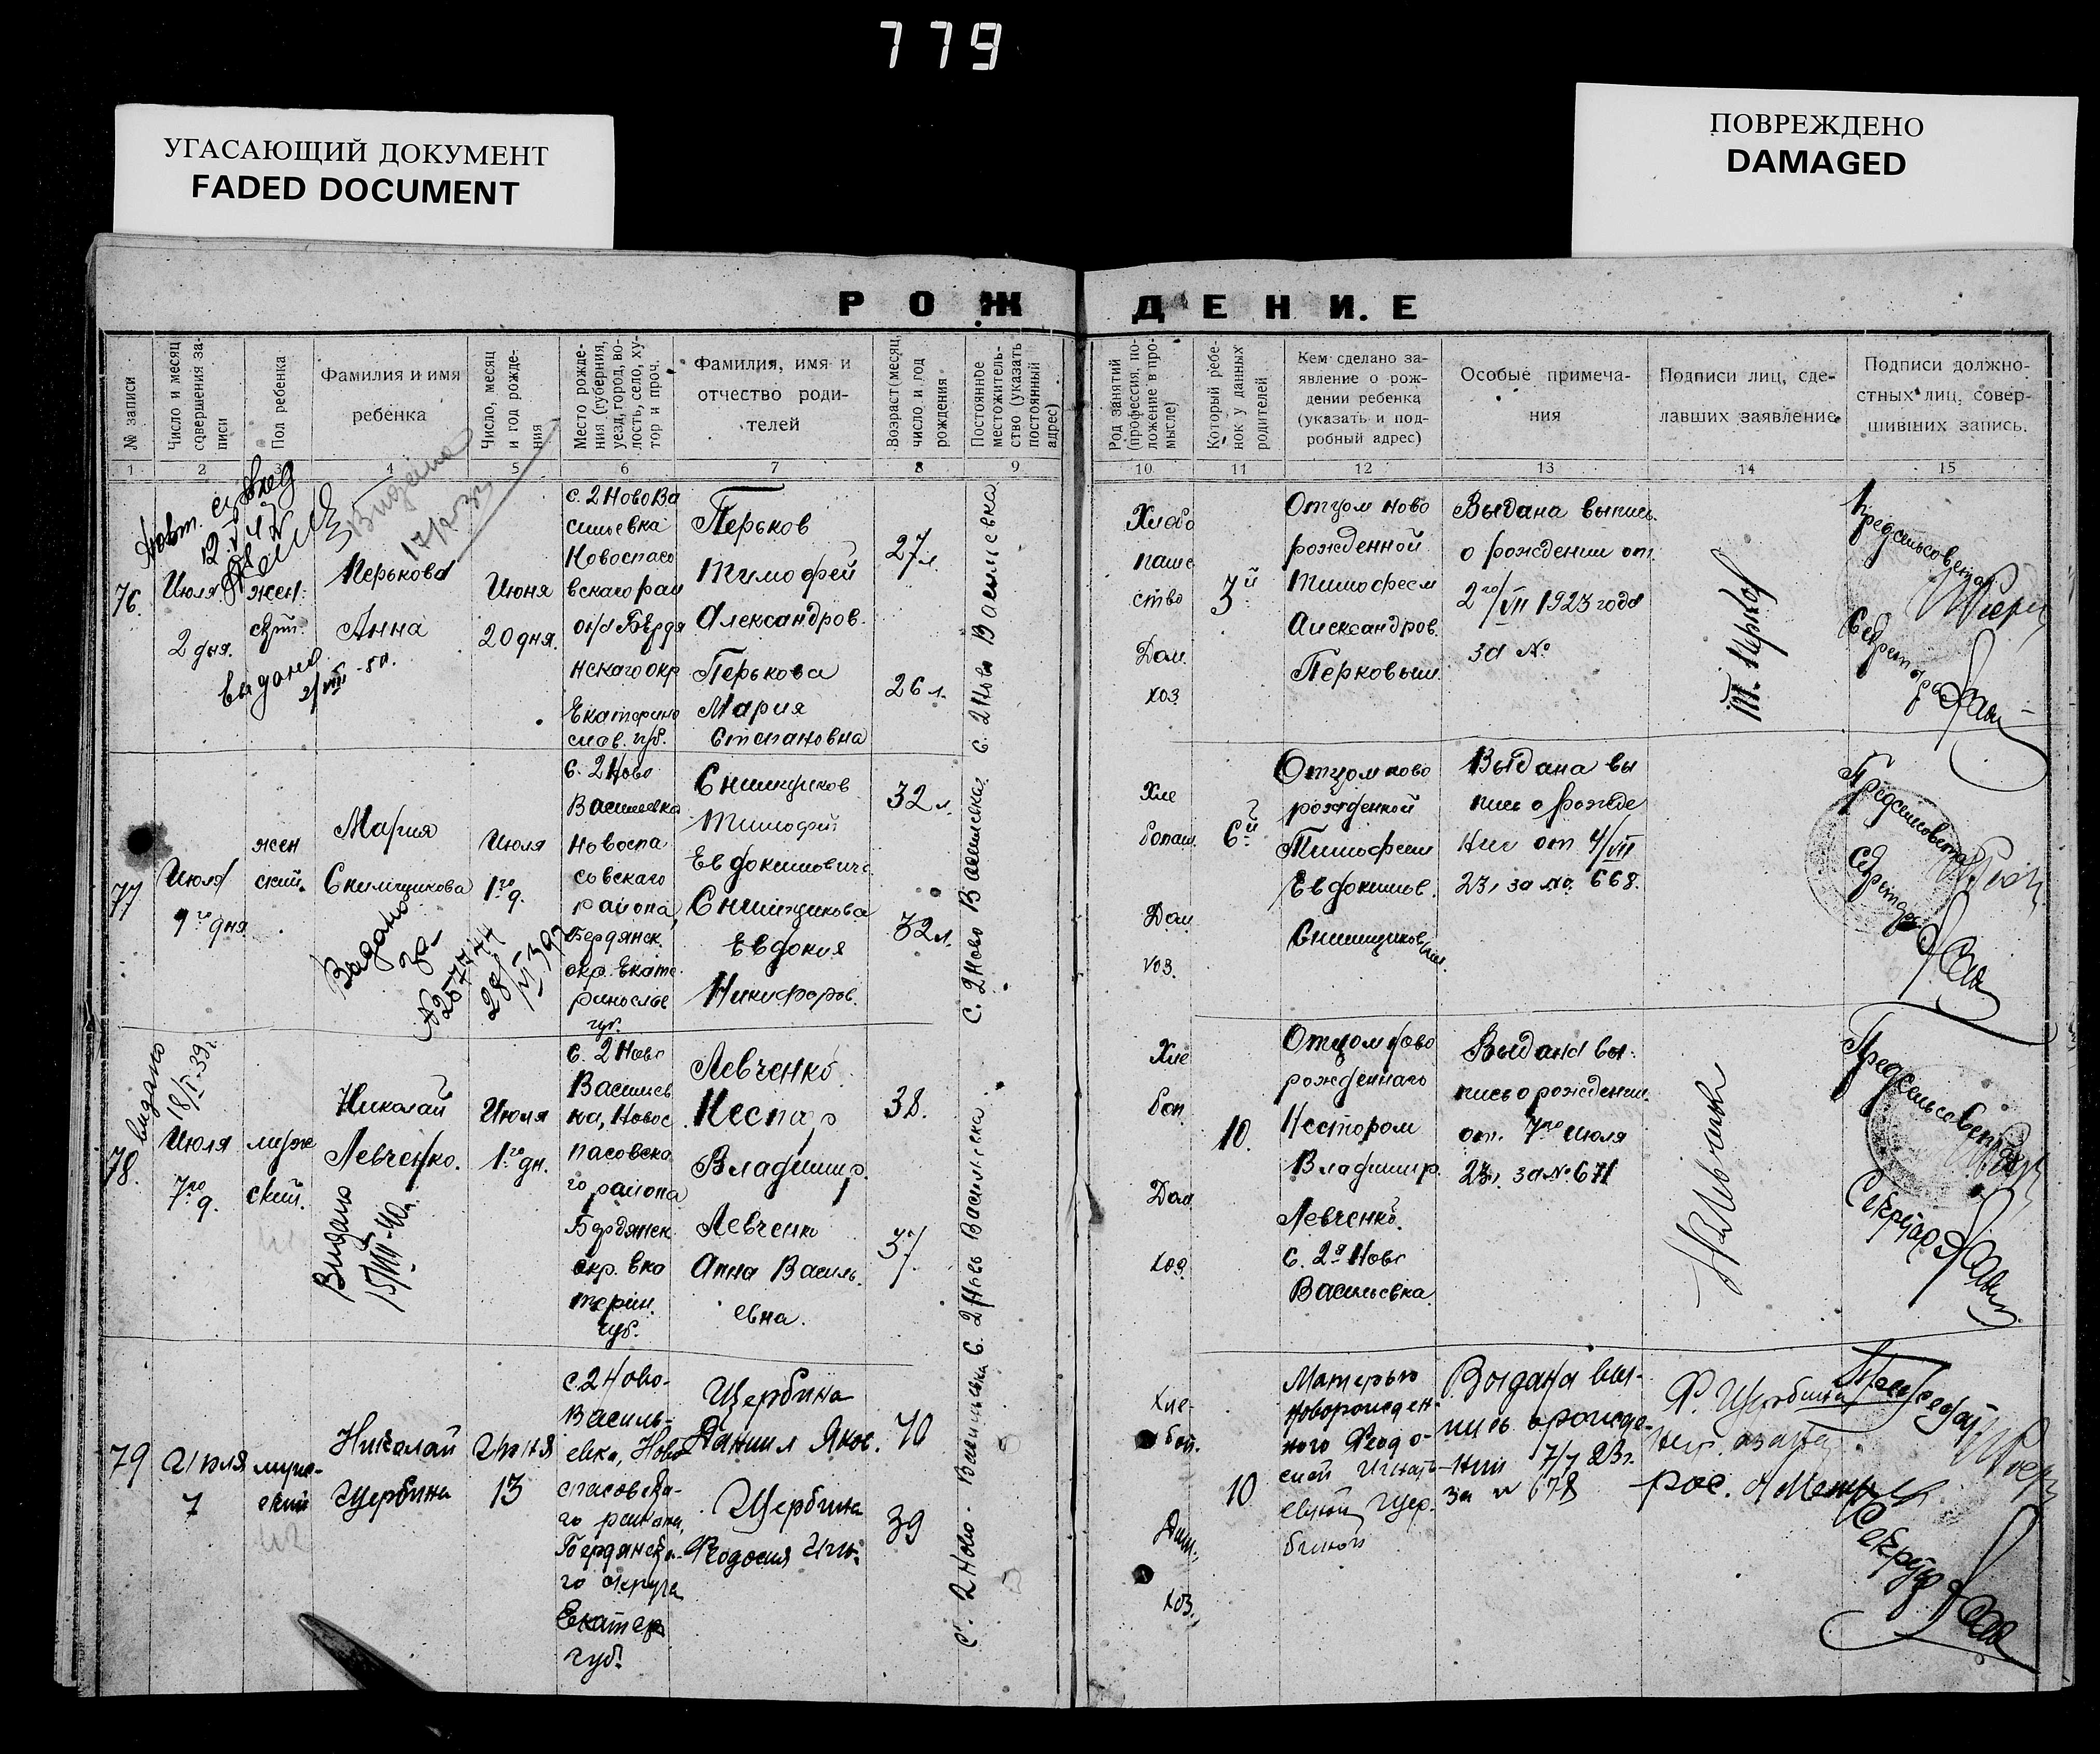 779
УГАСАЮЩИЙ ДОКУМЕНТ
FADED DOCUMENT
ПОВРЕЖДЕНО
DAMAGED
РОЖДЕНИЕ
№ записи
Число и месяц
совершения за-
писи
Пол ребенка
Фамилия и имя
ребенка
Число, месяц
и год рожде-
ния
Место рожде-
ния (губерния,
уезд, город, во-
лость, село, ху-
тор и проч.
Фамилия, имя и
отчество роди-
телей
Возраст (месяц,
число и год
рождения
Постоянное
местожитель-
ство (указать
постоянный
адрес)
Род занятий
(профессия, по-
ложение в про-
мысле)
Который ребе-
нок у данных
родителей
Кем сделано за-
явление о рож-
дении ребенка
(указать и под-
робный адрес)
Особые примеча-
ния
Подписи лиц, сде-
лавших заявление
Подписи должно-
стных лиц, совер-
шивших запись.
1 2 3 4 5 6 7 8 9 10 11 12 13 14 15
76.
Июля
2 дня.
жен.
ский.
видано
2/VIII-50.
Перькова
Анна
Июня
20 дня.
с. 2 Ново Ва
сильевка
Новоспасо
вскаго рай
она Бердя
нскаго окр
Екатерино
слав. губ.
Перьков
Тимофей
Александров.
Перькова
Мария
Степановна
27 л.
26 л.
с. 2 Ново Васильевка
Хлебо
паше
ство
Дом.
хоз
3й
Отцом ново
рожденной
Тимофеем
Александров.
Перковым
Выдана выпись
о рождении от
2го/VII 1923 года
за №
Т. Перков
Предсельсовета
Секретарь
77
Июля
4го дня
жен
ский.
Мария
Снимщикова
Видано
28/VI 39г
Июля
1го д.
с. 2 Ново
Васильевка
Новоспа
совскаго
района,
Бердянск.
окр. Екате
ринослав
губ.
Снимщиков
Тимофей
Евдокимович.
Снимщикова
Евдокия
Никифоров.
32 л.
32 л.
с. 2 Ново Васильевка
Хле
бопаш.
Дом
хоз.
6й
Отцом ново
рожденной
Тимофеем
Евдокимов.
Снимщиковым.
Выдана вы
пись о рожде
нии от 4/VII
23г за №. 668.
Предсельсовета
Секретарь
78.
видано
18/I-39г
Июля
7го д.
муж
ский.
Николай
Левченко.
Видано
15/VII-40г.
Июля
1го дн.
с. 2 Ново
Васильев
ка, Новос
пасовска
го района
Бердянск
окр. Ека
терин.
губ.
Левченко
Нестор
Владимир.
Левченко
Анна Василь.
евна.
38.
37
с. 2 Ново Васильевка
Хле
боп.
Дом
хоз.
10.
Отцом ново
рожденнаго
Нестором
Владимир.
Левченко.
с. 2я Ново
Васильевка.
Выдана вы-
пись о рождении
от. 7го июля
23г. за № 671
Н Левченко
Предсельсовета
Секретарь
79
Июля
7
муже-
ский
Николай
Щербина
Июня
13
с. 2 Ново-
Василь-
евка, Ново
спасовска-
го района,
Бердянска-
го округа
Екатер
губ.
Щербина
Даниил Яков.
Щербина
Феодосия Игн.
40
39
с. 2 Ново-Васильевка
Хле-
боп.
Дом.
хоз.
10
Матерью
новорожден-
ного Феодо-
сией Игнать-
евной Щер-
биной
Выдана вы-
пись о рожде-
нии 7/7 23г.
за № 678
Ф. Щербина
Секретарь